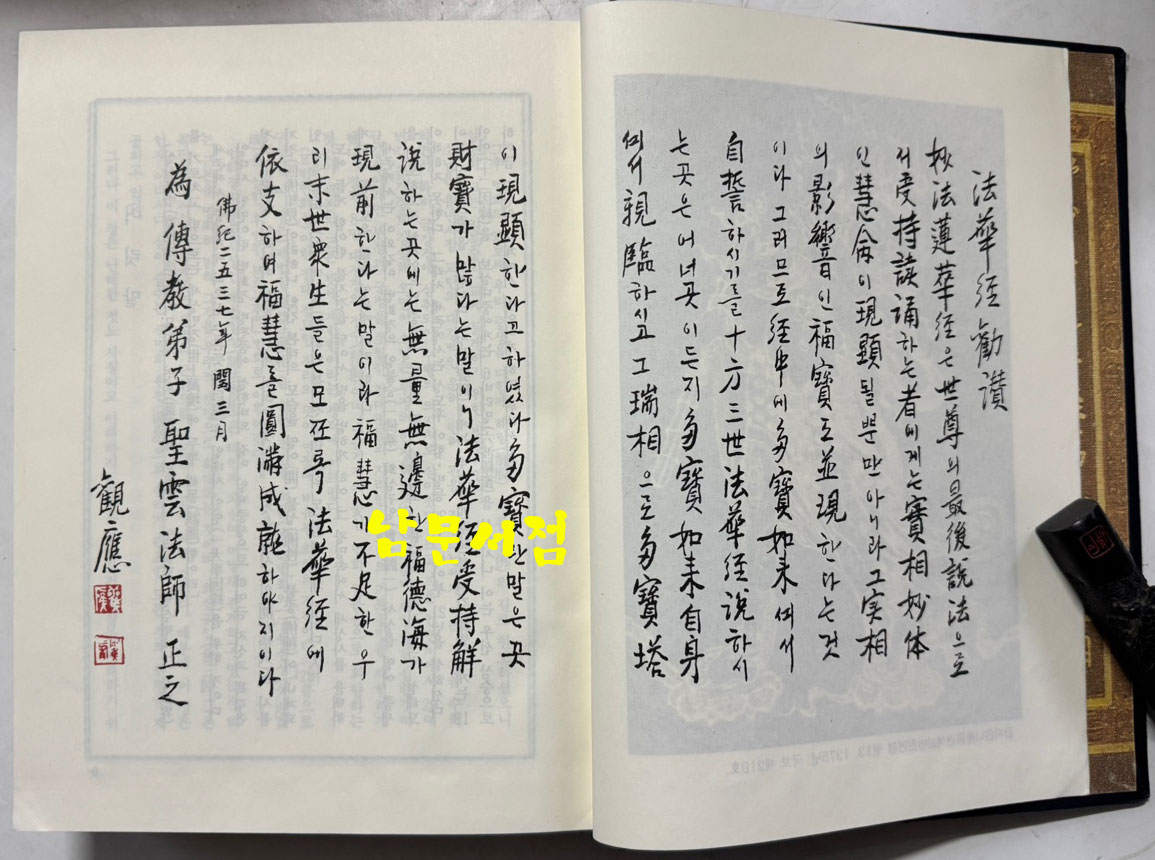 法華經勸讃
妙法蓮華經은 世尊의 最後說法으로
서 受持讀誦하는 者에게는 實相妙体
인 慧命이 現顯될 뿐만 아니라 그 实相
의 影響인 福寶도 並現한다는 것
이다 그러므로 經中에 多寶如来께서
自誓하시기를 十方三世 法華經 說하시
는 곳은 어녀곳이든지 多寶如来自身
께서 親臨하시고 그 瑞相으로 多寶塔
이 現顯한다고 하였다 多寶란 말은 곳
財寶가 많다는 말이니 法華經 受持解
說하는 곳에는 無量無邊한 福德海가
現前한다는 말이라 福慧가 不足한 우
리 末世衆生들은 모쪼록 法華經에
依支하며 福慧를 圓滿成就하야지이다
佛紀二五三七年 閏三月
為 傳教弟子 聖雲法師 正之
觀應
남문서점